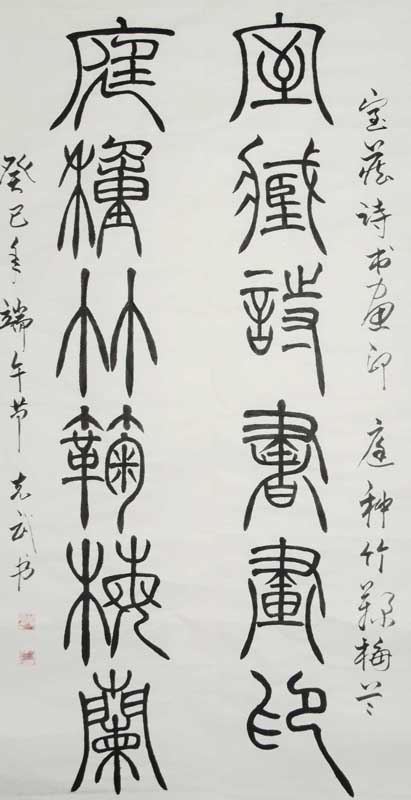 室藏诗书画印 庭种竹鞠梅兰
室藏詩書畫印
庭種竹鞠梅蘭
癸巳年端午节 克武书